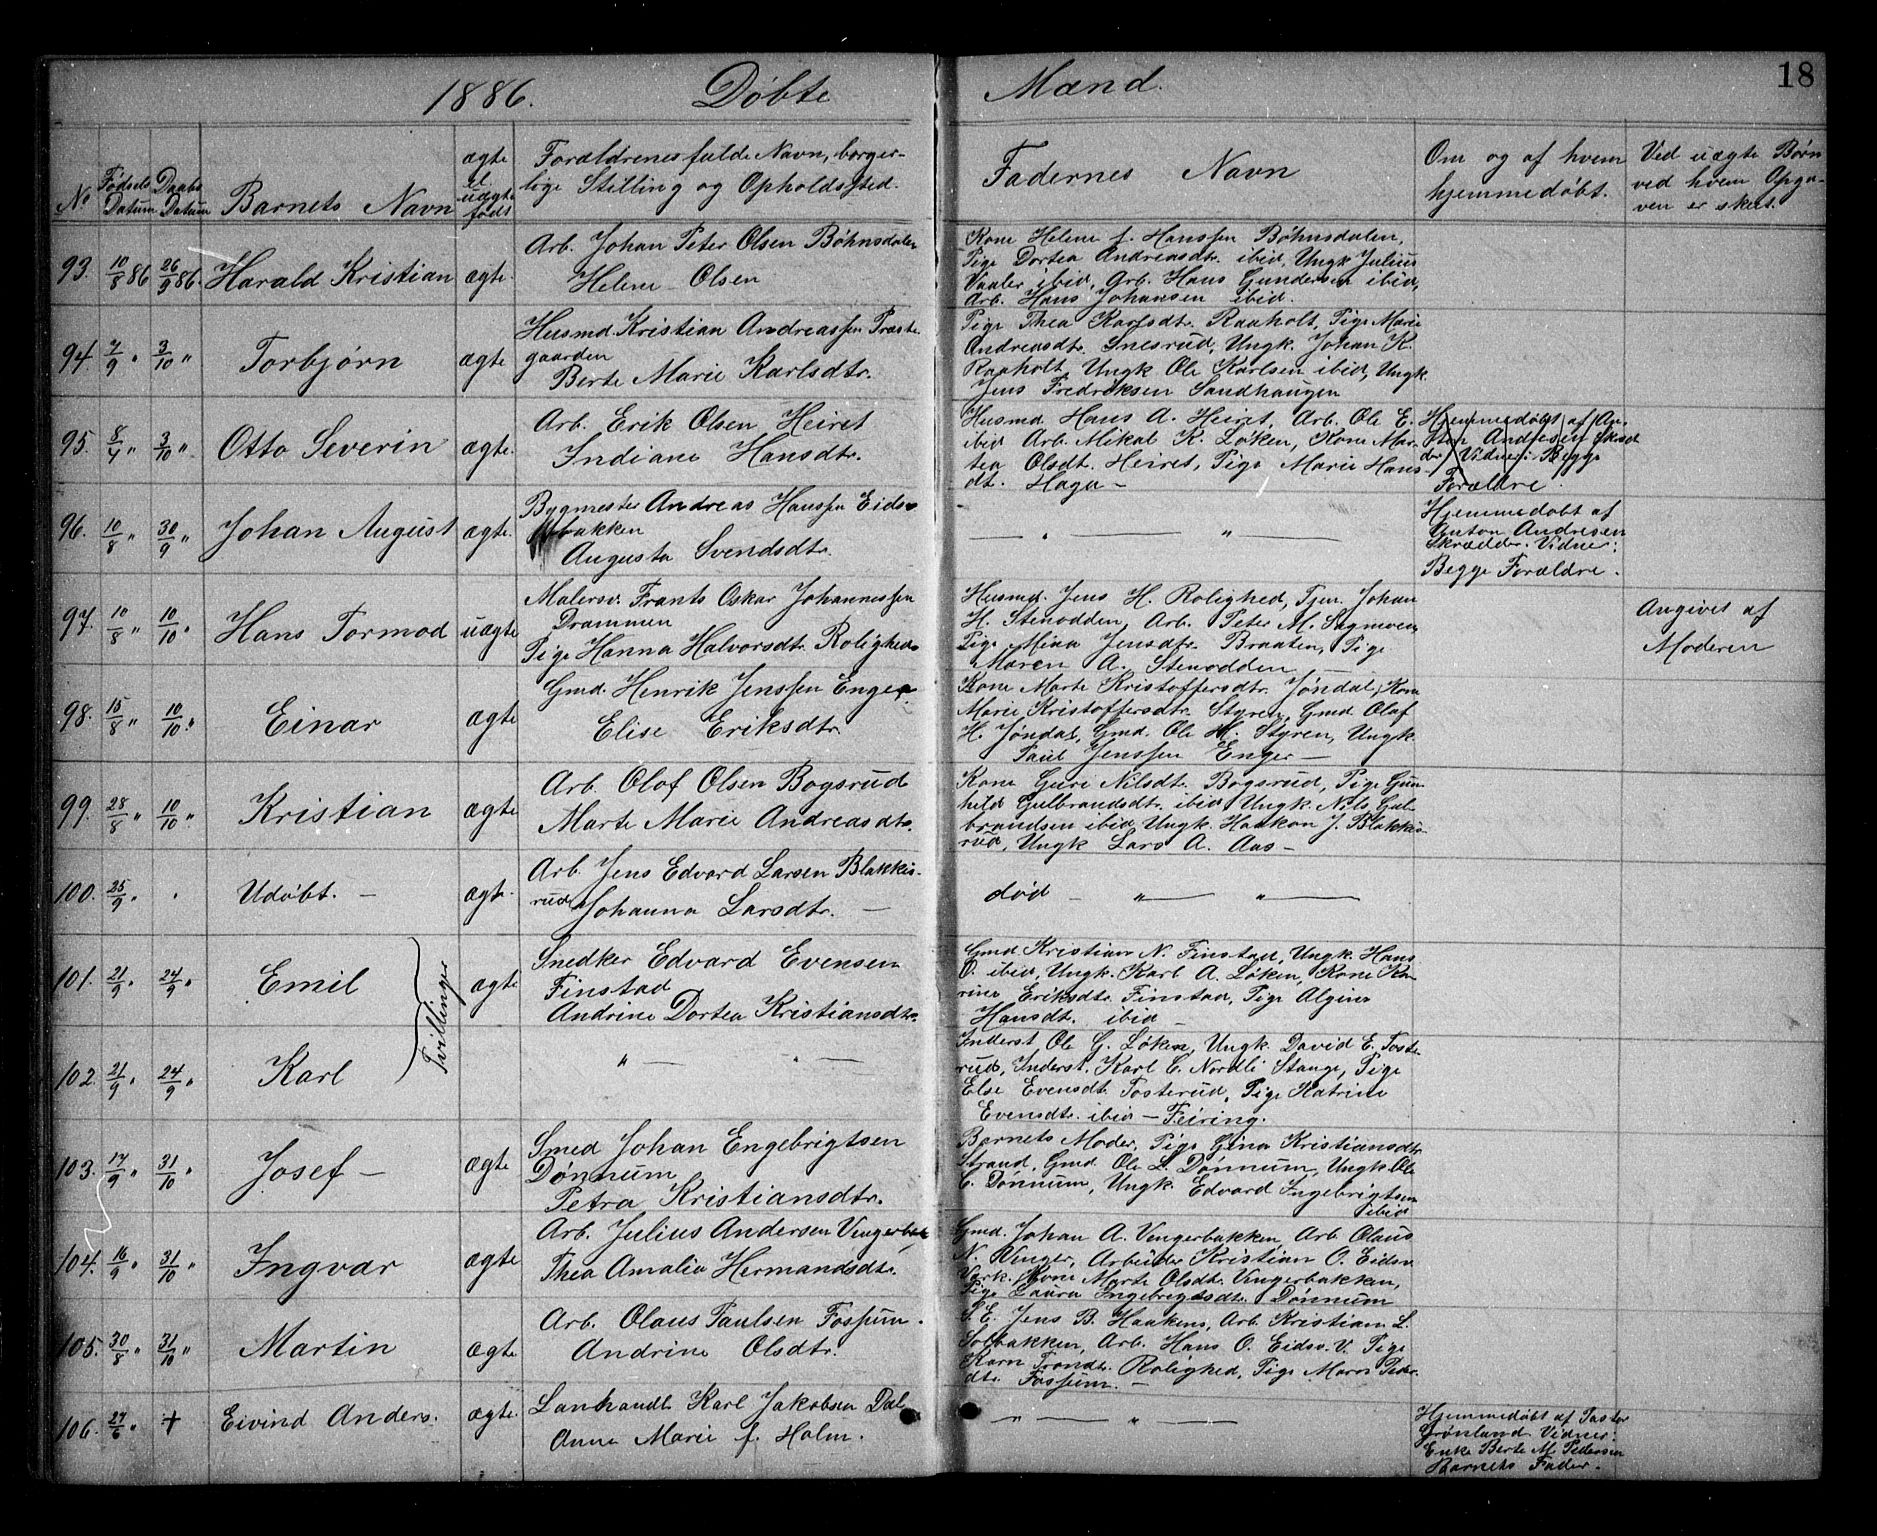 1886. Døbte Mænd. 18
No Fødsels Datum Daabs Datum Barnets Navn ægte el uægte født Forældrenes fulde Navn, borgerlige Stilling og Opholdssted. Fadernes Navn Om og af hvem hjemmedøbt. Ved uægte Børn ved hvem Opgaven er skeet.
93. 10/8 86 26/9 86. Harald Kristian ægte.
Arb. Johan Peter Olsen Bøhnsdalen
Helene Olsen
Kone Helene f. Hanssen Bøhnsdalen,
Pige Dortea Andreasdtr. ibid, Ungk Julius
Vaaler ibid, Arb. Hans Gundersen ibid,
Arb. Hans Johansen ibid.
94. 7/9 " 3/10 " Torbjørn ægte
Husmd. Kristian Andreassen Præste
gaarden
Berte Marie Karlsdtr.
Pige Thea Karlsdtr. Raaholt, Pige Marie
Andreasdtr. Snesrud, Ungk. Johan K.
Raaholt, Ungk Ole Karlsen ibid, Ungk
Jens Fredriksen Sandhaugen
95. 8/4 " 3/10 " Otto Severin ægte.
Arb. Erik Olsen Heiret
Indiane Hansdtr.
Husmd. Hans A. Heiret, Arb. Ole E.
ibid Arb. Mikal K. Løken, Kone Mar-
tea Olsdt. Heiret, Pige Marie Hans-
dt. Haga -
Hjemmedøbt af An-
ton Andresen Skræd
der Vidner: Begge
Forældre
96. 10/8 " 30/9 " Johan August ægte.
Bygmester Andreas Hanssen Eids-
bakken
Augusta Svendsdtr.
— " — " —
Hjemmedøbt af
Anton Andresen
Skrædder. Vidner:
Begge Forældre.
97. 10/8 " 10/10 " Hans Tormod uægte
Malersv. Frants Oskar Johannessen
Drammen
Pige Hanna Halvorsdtr. Rolighed
Husmd. Jens H. Rolighed, Tjen. Johan
H. Stenodden, Arb. Peter M. Sagmoen
Pige Mina Jensdtr. Braaten, Pige
Maren A. Stenodden —
Angivet af
Moderen
98. 15/8 " 10/10 " Einar ægte
Gmd. Henrik Jenssen Enger.
Elise Eriksdtr.
Kone Marte Kristoffersdtr. Jøndal, Kone
Marie Kristoffersdtr. Styren, Gmd. Olaf
H. Jøndal, Gmd. Ole M. Styren, Ungk
Paul Jenssen Enger —
99. 28/8 " 10/10 " Kristian ægte
Arb. Olof Olsen Bogsrud
Marte Marie Andreasdtr.
Kone Guri Nilsdt. Bogsrud, Pige Gun
hild Gulbrandsdtr. ibid Ungk. Nils Gul-
brandsen ibid Ungk. Haakon J. Blakkis-
rud, Ungk Lars A. Aas —
100. 25/9 " . Udøbt. — ægt.
Arb. Jens Edvard Larsen Blakkis-
rud Johanna Larsdtr. —
død — " — " —
101. 21/9 " 24/9 " Emil ægte Tvillinger
Snedker Edvard Evensen
Finstad
Andrine Dortea Kristiansdtr.
Gmd Kristian N. Finstad, Ungk. Hans
O. ibid, Ungk. Karl A. Løken, Kone Ka-
rine Eriksdtr. Finstad, Pige Algine
Hansdt. ibid —
102. 21/9 " 24/9 " Karl
" — " —
Inderst Ole G. Løken, Ungk. David E. Toste-
rud, Inderst. Karl C. Nordli Stange, Pige
Else Evensdt. Tosterud, Pige Katrine
Evensdtr. ibid — Feiring.
103. 17/9 " 31/10 " Josef — ægte
Smed Johan Engebrigtsen
Dønnum
Petra Kristiansdtr.
Barnets Moder, Pige Gina Kristiansdtr
Strand, Gmd. Ole L. Dønnum, Ungk Ole
C. Dønnum, Ungk. Edvard Ingebrigtsen
ibid
104. 16/9 " 31/10 " Ingvar ægte
Arb. Julius Andersen Vingerbak
Thea Amalia Hermandsdtr.
Gmd. Johan A. Vingerbakken, Arb Olaus
N. Vinger, Arbeider Kristian O. Eidsv.
Værk, Kone Marte Olsdt. Vingerbakken,
Pige Laura Ingebrigtsdt. Dønnum
105. 30/8 " 31/10 " Martin ægte
Arb. Olaus Paulsen Fossum.
Andrine Olsdtr.
S. E. Jens B. Haakens, Arb. Kristian L.
Solbakken, Arb. Hans O. Eidsv. V. Pige
Karn Trondt. Rolighed, Pige Marn Peder-
dt. Fossum. —
106. 27/6 " + Eivind Anders. ægte.
Lanhandl. Karl Jakobsen Dal
Anne Marie f. Holm.
— " — " —
Hjemmedøbt af Pastor
Grønland. Vidner:
Enke Berte M. Pedersen
Barnets Fader.